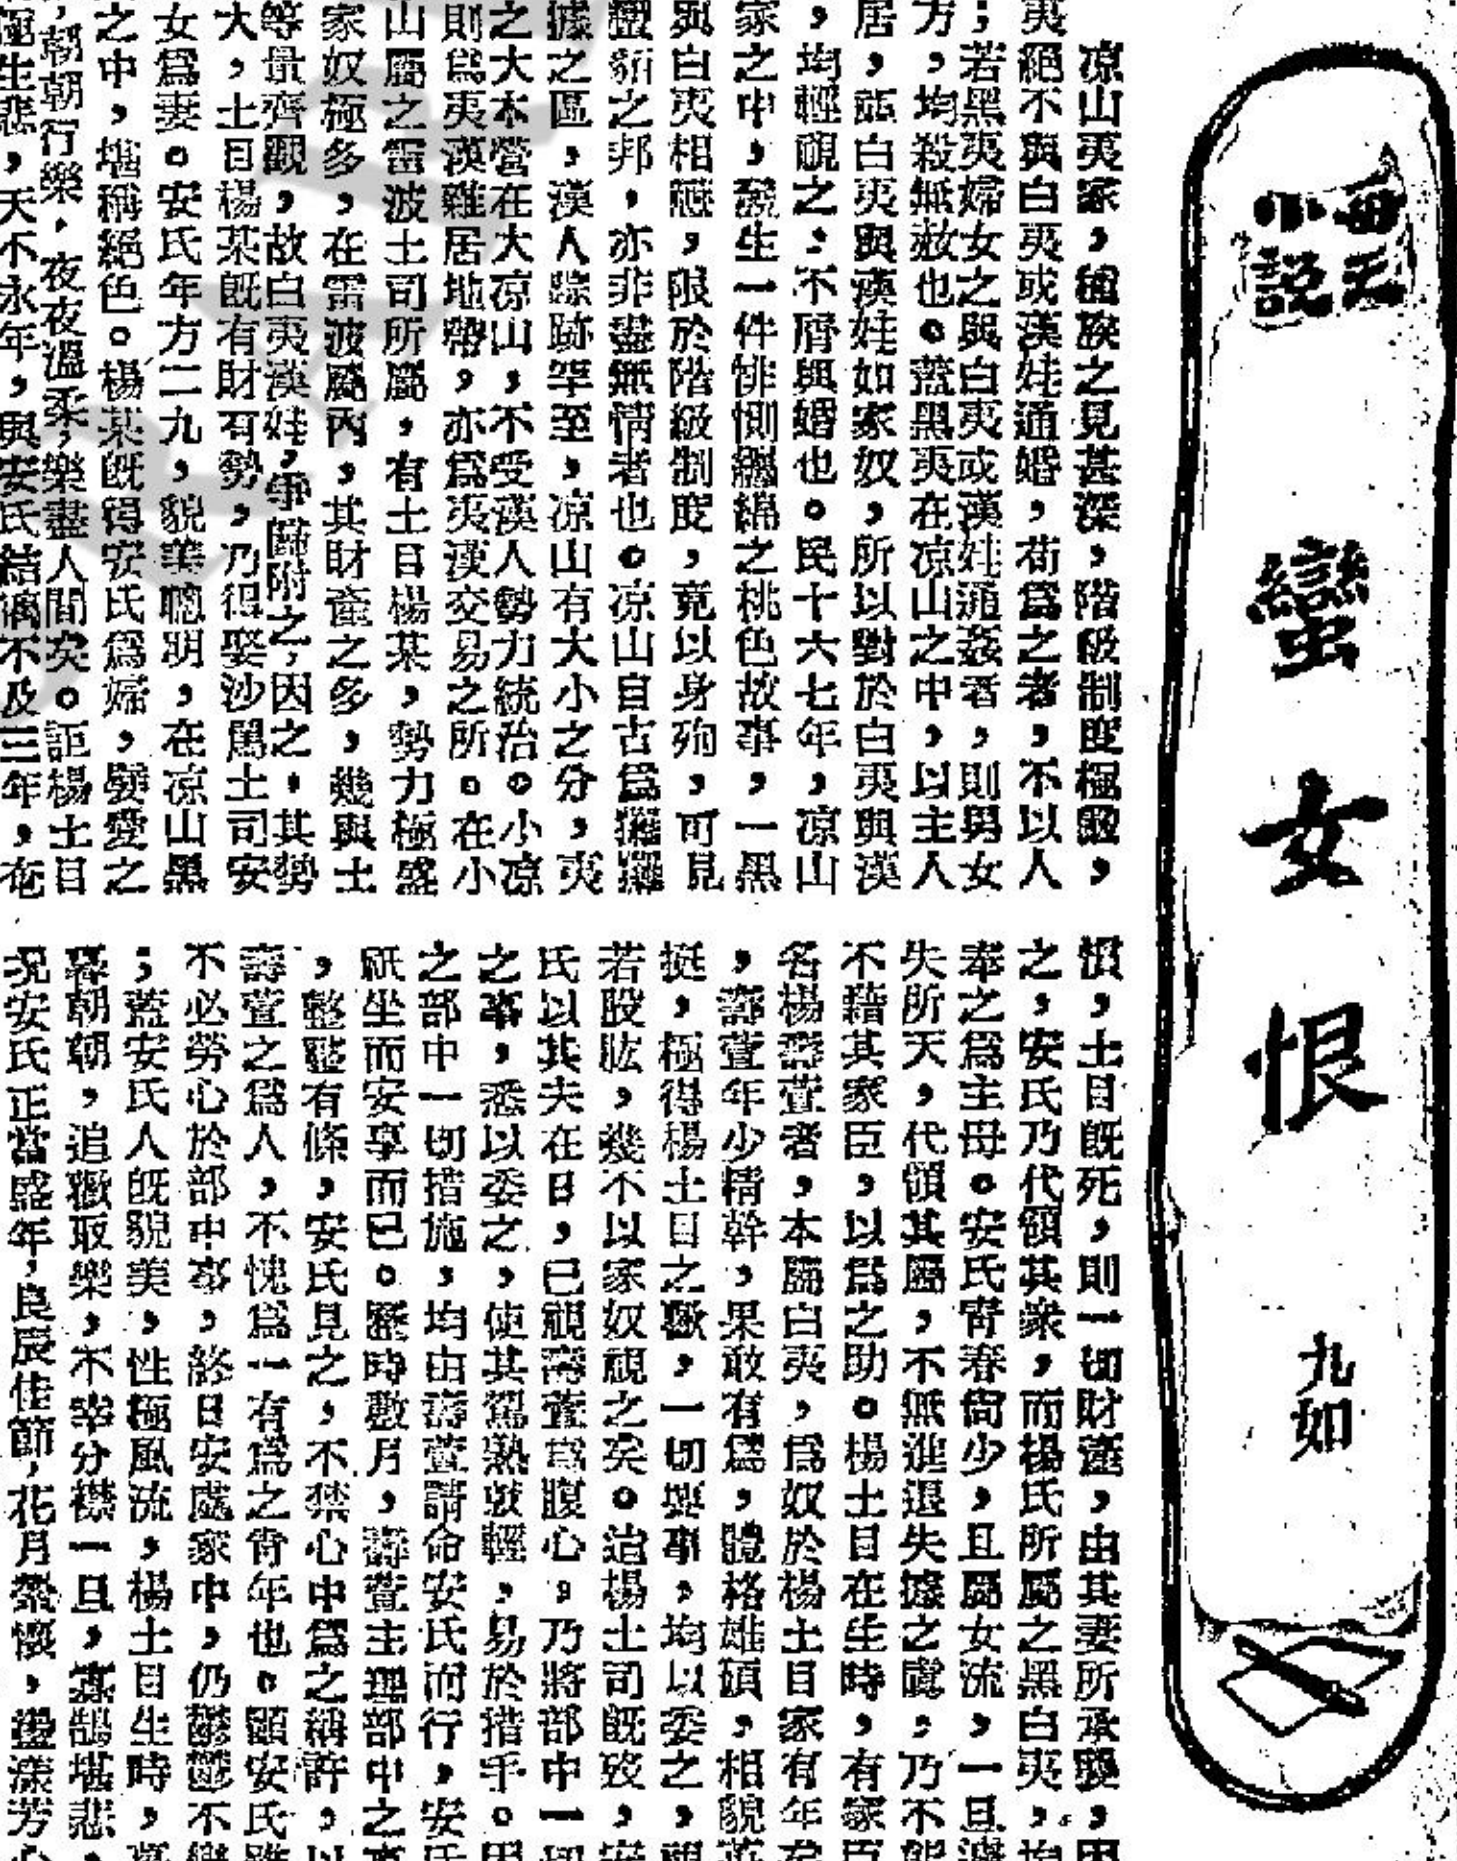 每三
小說
蠻女恨
九如
凉山夷家，種族之見甚深，階級制度極嚴，
夷絕不與白夷或漢娃通婚，苟爲之者，不以人
；若黑夷婦女之與白夷或漢娃通姦者，則男女
方，均殺無赦也。蓋黑夷在凉山之中，以主人
居，視白夷與漢娃如家奴，所以對於白夷與漢
，均輕視之，不屑與婚也。民十六七年，凉山
家之中，發生一件悱惻纏綿之桃色故事，一黑
與白夷相戀，限於階級制度，竟以身殉，可見
蠻貊之邦，亦非盡無情者也。凉山自古爲玀玀
據之區，漢人踪跡罕至，凉山有大小之分，夷
之大本營在大凉山，不受漢人勢力統治。小凉
則爲夷漢雜居地帶，亦爲夷漢交易之所。在小
山屬之雷波土司所屬，有土目楊某，勢力極盛
家奴極多，在雷波屬內，其財產之多，幾與土
等量齊觀，故白夷漢娃，爭圖附之，因之，其勢
大，土目楊某既有財有勢，乃得娶沙罵土司安
女爲妻。安氏年方二九，貌美聰明，在凉山黑
之中，堪稱絕色。楊某既得安氏爲婦，嬖愛之
朝朝行樂，夜夜溫柔，樂盡人間矣。詎楊土目
極生悲，天不永年，與安氏結褵不及三年，奄
恨，土目既死，則一切財產，由其妻所承襲，因
之，安氏乃代領其衆，而楊氏所屬之黑白夷，均
奉之爲主母。安氏靑春尙少，且屬女流，一旦
失所天，代領其屬，不無進退失據之處，乃不能
不藉其家臣，以爲之助。楊土目在生時，有家臣
名楊壽萱者，本屬白夷，爲奴於楊土目家有年矣
，壽萱年少精幹，果敢有爲，體格雄碩，相貌英
挺，極得楊土目之歡，一切要事，均以委之，視
若股肱，幾不以家奴視之矣。迨楊土司既歿，安
氏以其夫在日，已視壽萱爲腹心，乃將部中一切
之事，悉以委之，使其駕熟就輕，易於措手。因
之部中一切措施，均由壽萱請命安氏而行，安氏
祇坐而安享而已。歷時數月，壽萱主理部中之事
，整整有條，安氏見之，不禁心中爲之稱許，以
壽萱之爲人，不愧爲一有爲之靑年也。顧安氏雖
不必勞心於部中事，終日安處家中，仍鬱鬱不樂
；蓋安氏人既貌美，性極風流，楊土目生時，
暮朝朝，追歡取樂，不幸分襟一旦，寡鵠堪悲，
況安氏正當盛年，良辰佳節，花月縈懷，盪漾芳心